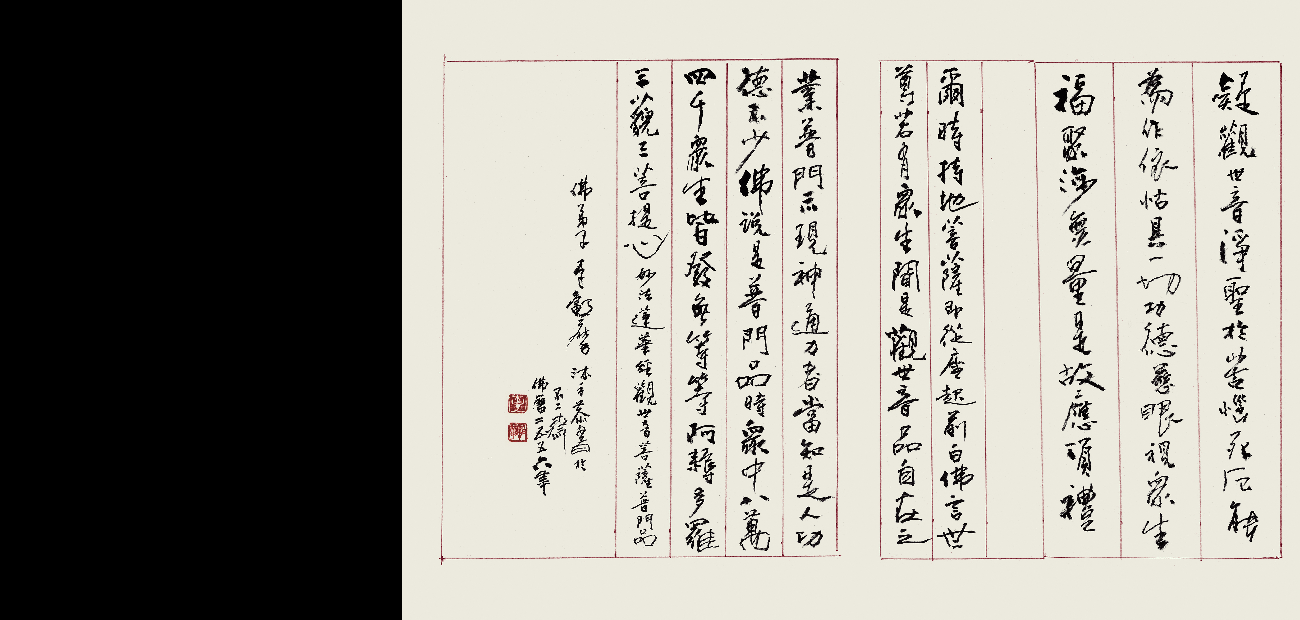 疑觀世音淨聖於苦惱死厄能
為作依怙具一切功德慈眼視眾生
福聚海無量是故應頂禮
爾時持地菩薩即從座起前白佛言世
尊若有眾生聞是觀世音品自在之
業普門示現神通力者當知是人功
德不少佛說是普門品時眾中八萬
四千眾生皆發無等等阿耨多羅
三藐三菩提心妙法蓮華經觀世音菩薩普門品
佛弟子李 沐手恭書於
不二齋
佛曆二五五六年